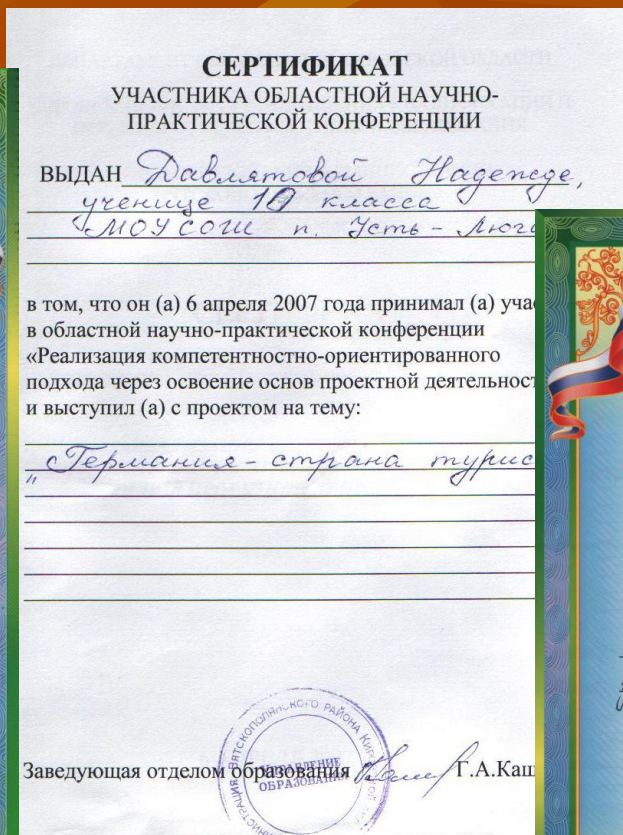 СЕРТИФИКАТ
УЧАСТНИКА ОБЛАСТНОЙ НАУЧНО-
ПРАКТИЧЕСКОЙ КОНФЕРЕНЦИИ
ВЫДАН Давлятовой Надежде,
ученице 10 класса
МОУ СОШ п. Усть-Люга
в том, что он (а) 6 апреля 2007 года принимал (а) учас
в областной научно-практической конференции
«Реализация компетентностно-ориентированного
подхода через освоение основ проектной деятельност
и выступил (а) с проектом на тему:
„Германия - страна турис
Заведующая отделом образования Г.А.Каш
УПРАВЛЕНИЕ
ОБРАЗОВАНИЯ
ВЯТСКОПОЛЯНСКОГО РАЙОНА